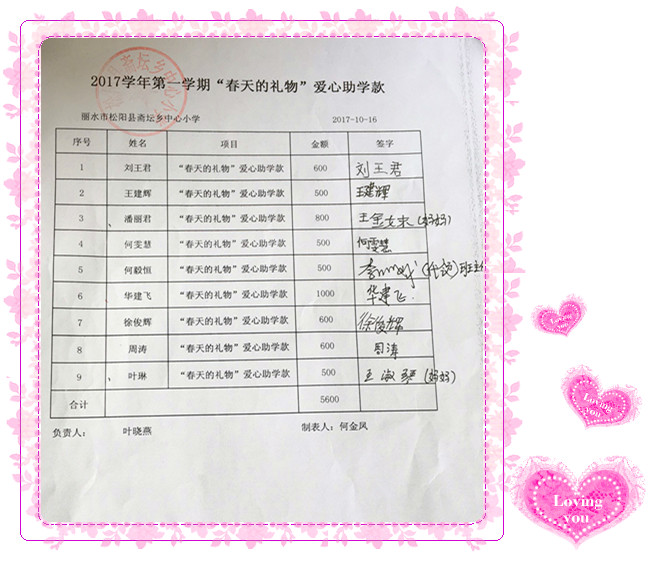 2017学年第一学期“春天的礼物”爱心助学款
丽水市松阳县斋坛乡中心小学 2017-10-16
序号 姓名 项目 金额 签字
1 刘王君 “春天的礼物”爱心助学款 600 刘王君
2 王建辉 “春天的礼物”爱心助学款 500 王建辉
3 潘丽君 “春天的礼物”爱心助学款 800 王金女 (妈妈)
4 何雯慧 “春天的礼物”爱心助学款 500 何雯慧
5 何毅恒 “春天的礼物”爱心助学款 500 李 (代领) 班主
6 华建飞 “春天的礼物”爱心助学款 1000 华建飞
7 徐俊辉 “春天的礼物”爱心助学款 600 徐俊辉
8 周涛 “春天的礼物”爱心助学款 600 周涛
9 叶琳 “春天的礼物”爱心助学款 500 王淑琴 (妈妈)
合计 5600
负责人： 叶晓燕 制表人：何金凤
Loving
you
Loving
you
Loving
you